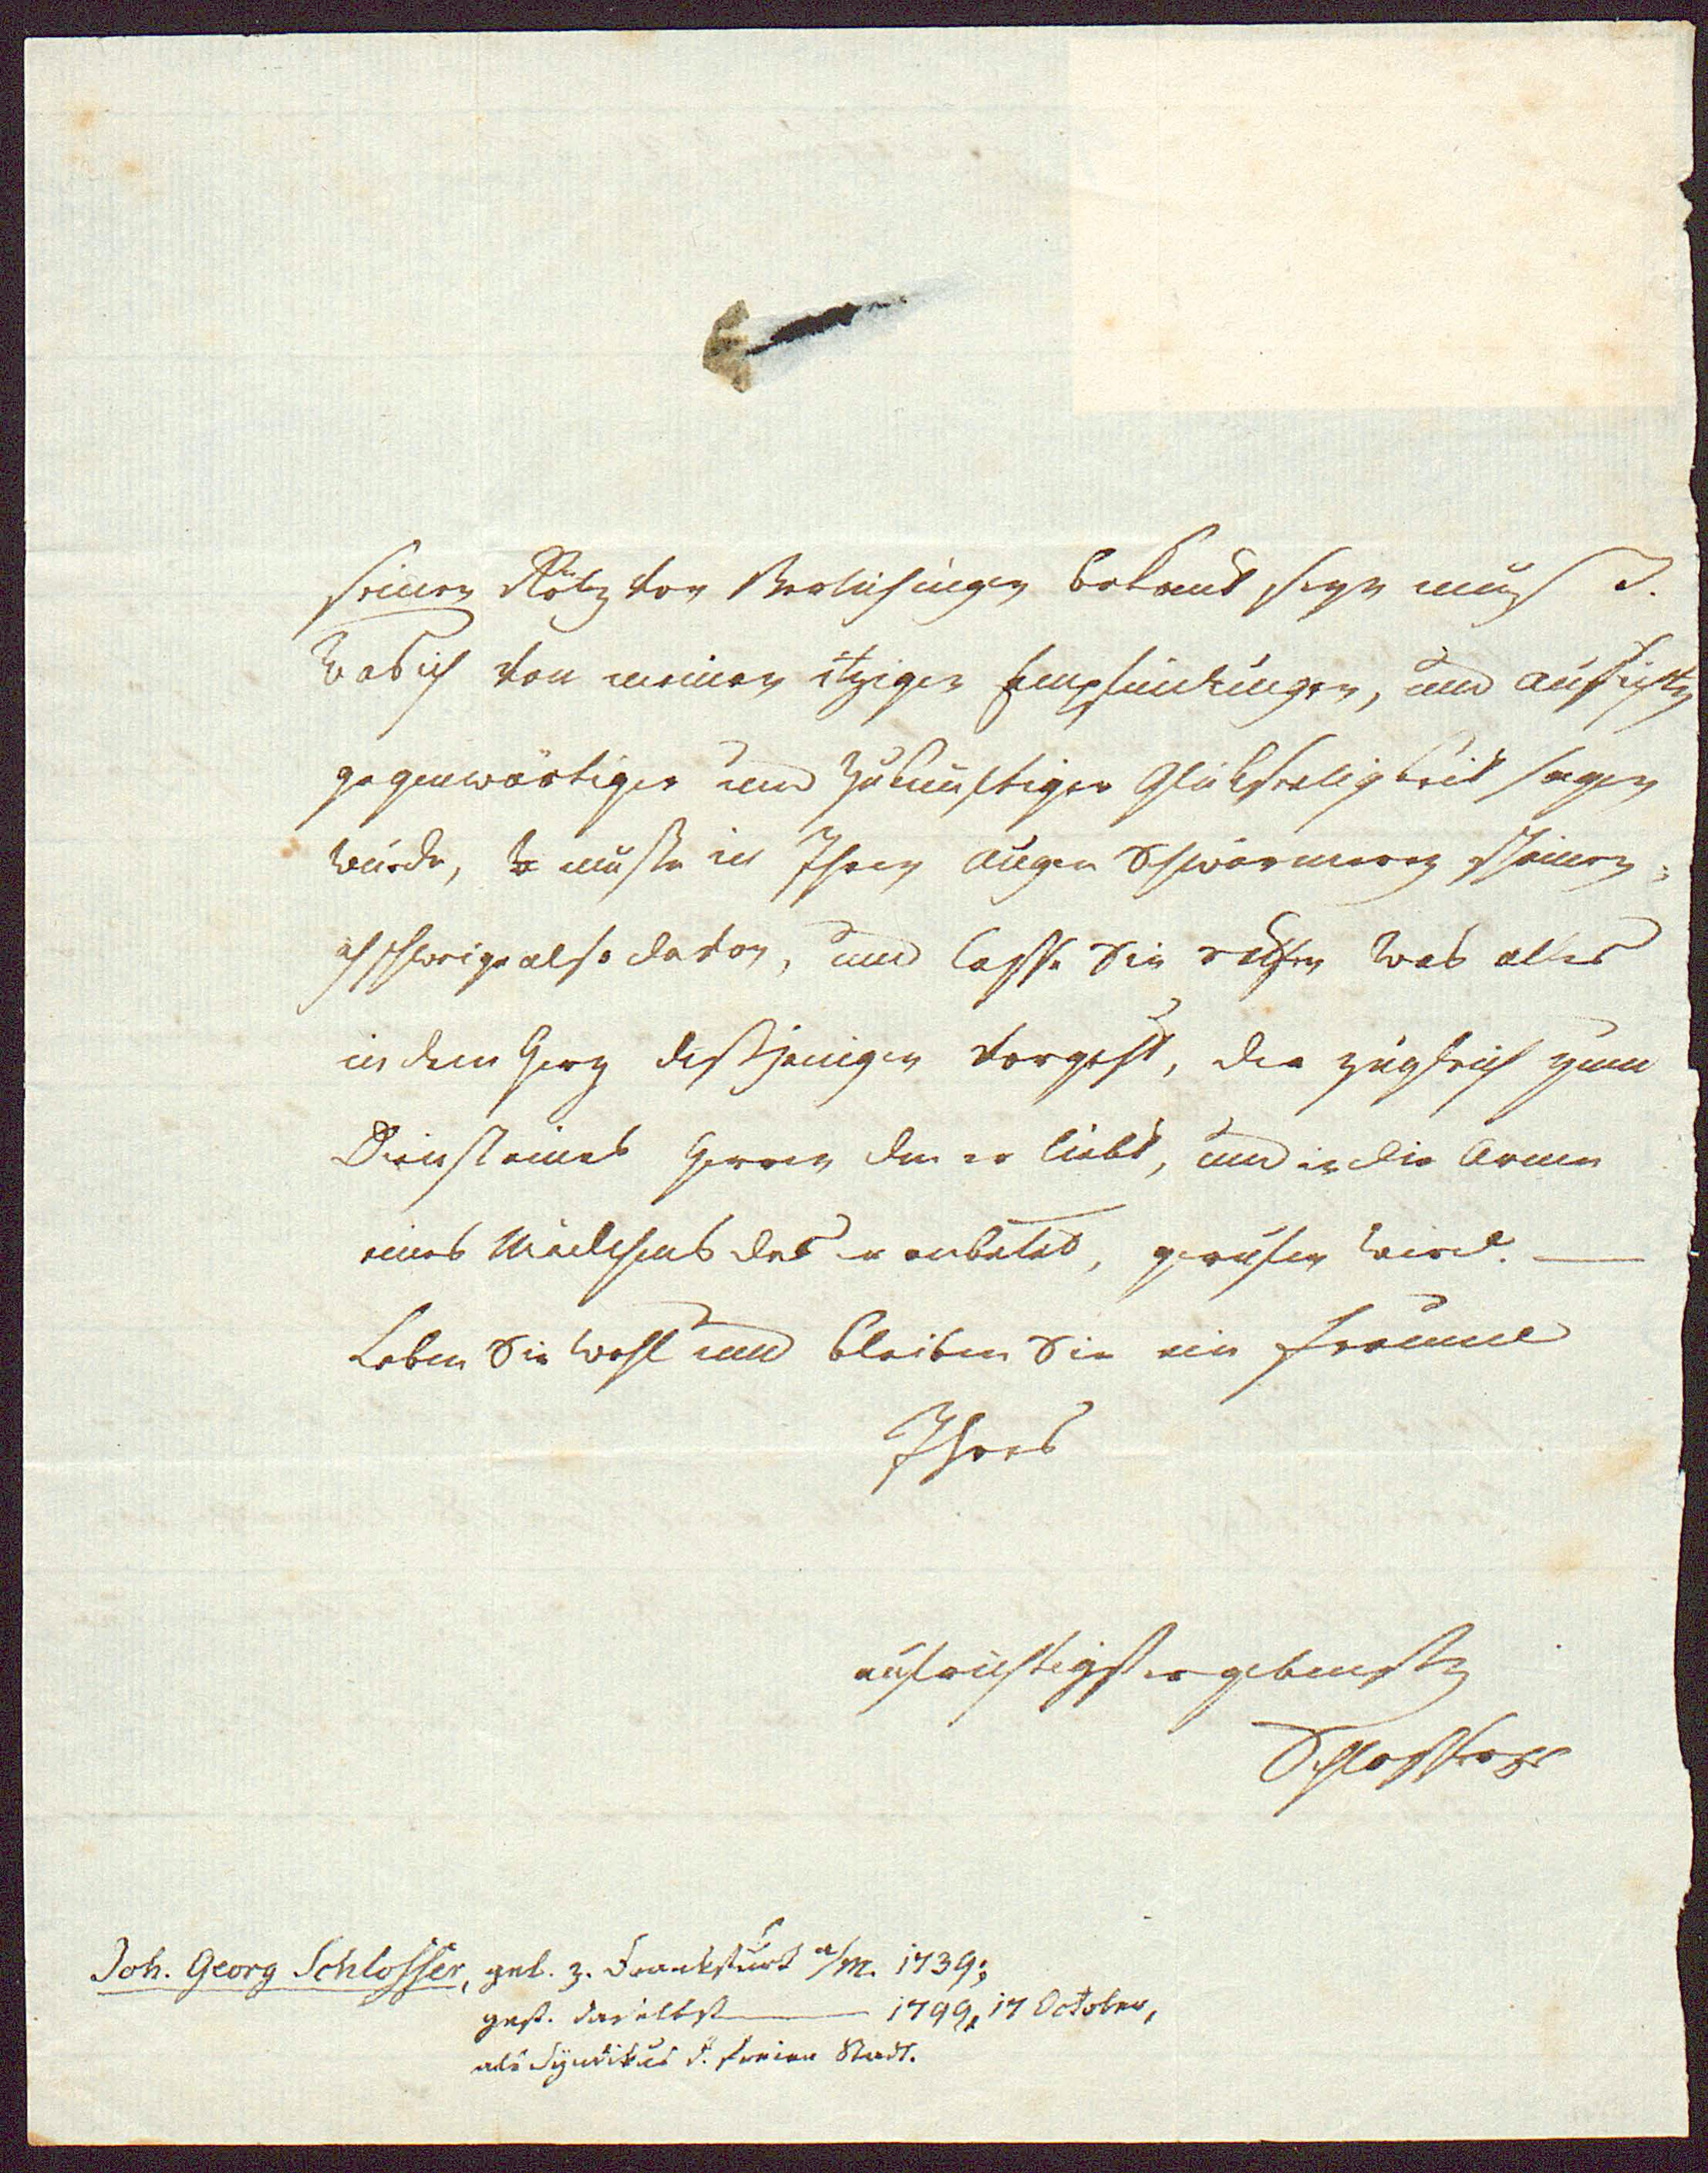 seinen Götz von Berlichingen bekand seyn muß
Was ich von meinen itzigen Empfindungen, und aussichten
gegenwärtiger und zukünftiger Glückseeligkeit sagen
würde, müste in Ihren augen Schwärmerey scheinen;
ich schweige also davon, und lasse Sie rathen was alles
in dem Herz desjenigen vorgeht, der zugleich zum
Dienst eines Herren den er liebt, und in die Arme
eines Mädchens das er anbetet, gerufen wird. —
Leben Sie wohl und bleiben Sie ein Freund
Ihres
aufrichtigst ergebensten
Schlossers
Joh. Georg Schlosser, geb. z. Frankfurt a/M. 1739;
gest. daselbst — 1799, 17 October,
als Syndikus d. freien Stadt.